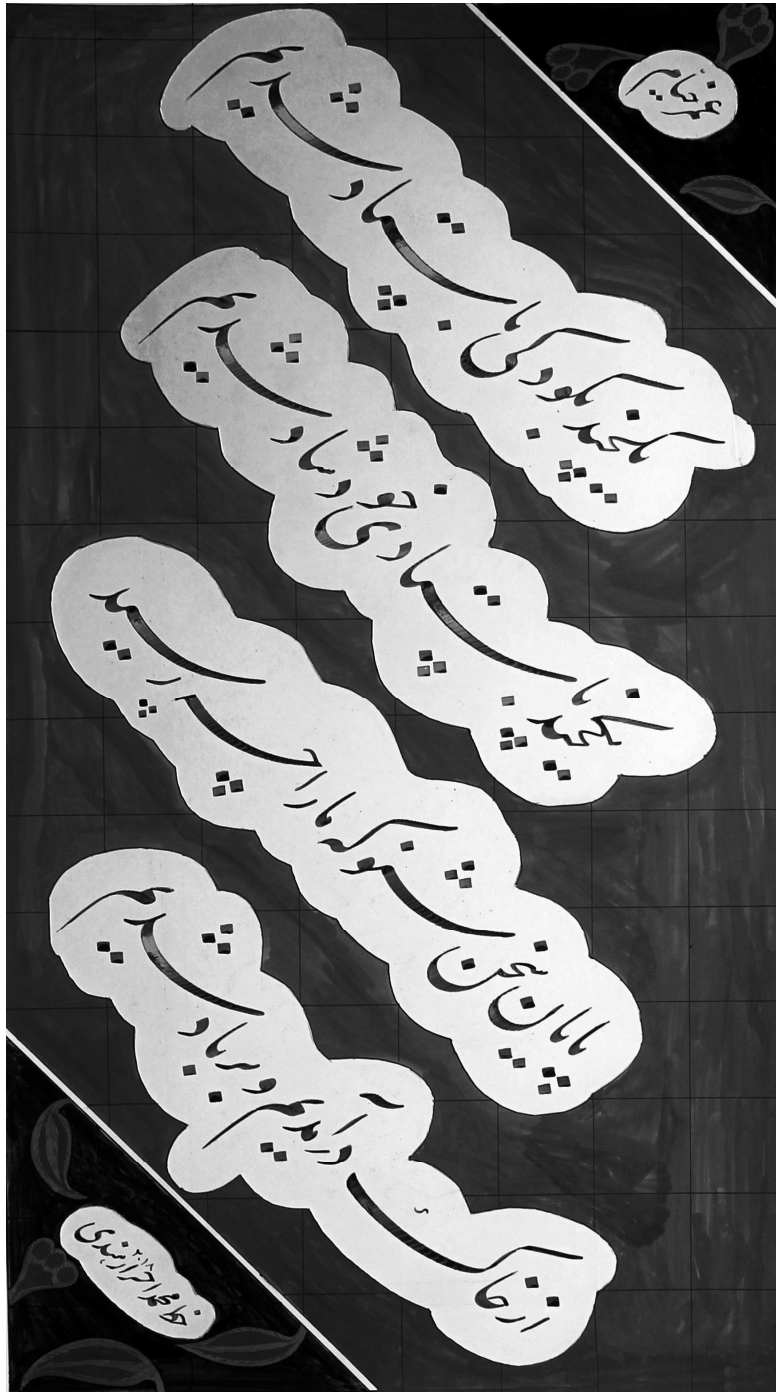 عمر خیّام
یکچند بکودکی باستاد شدیم
یکچند باستادی خود شاد شدیم
پایان سخن شنو که ما را چه رسید
از خاک در آمدیم و بر باد شدیم
خط محمد احرار هندی ۲۰۱۸